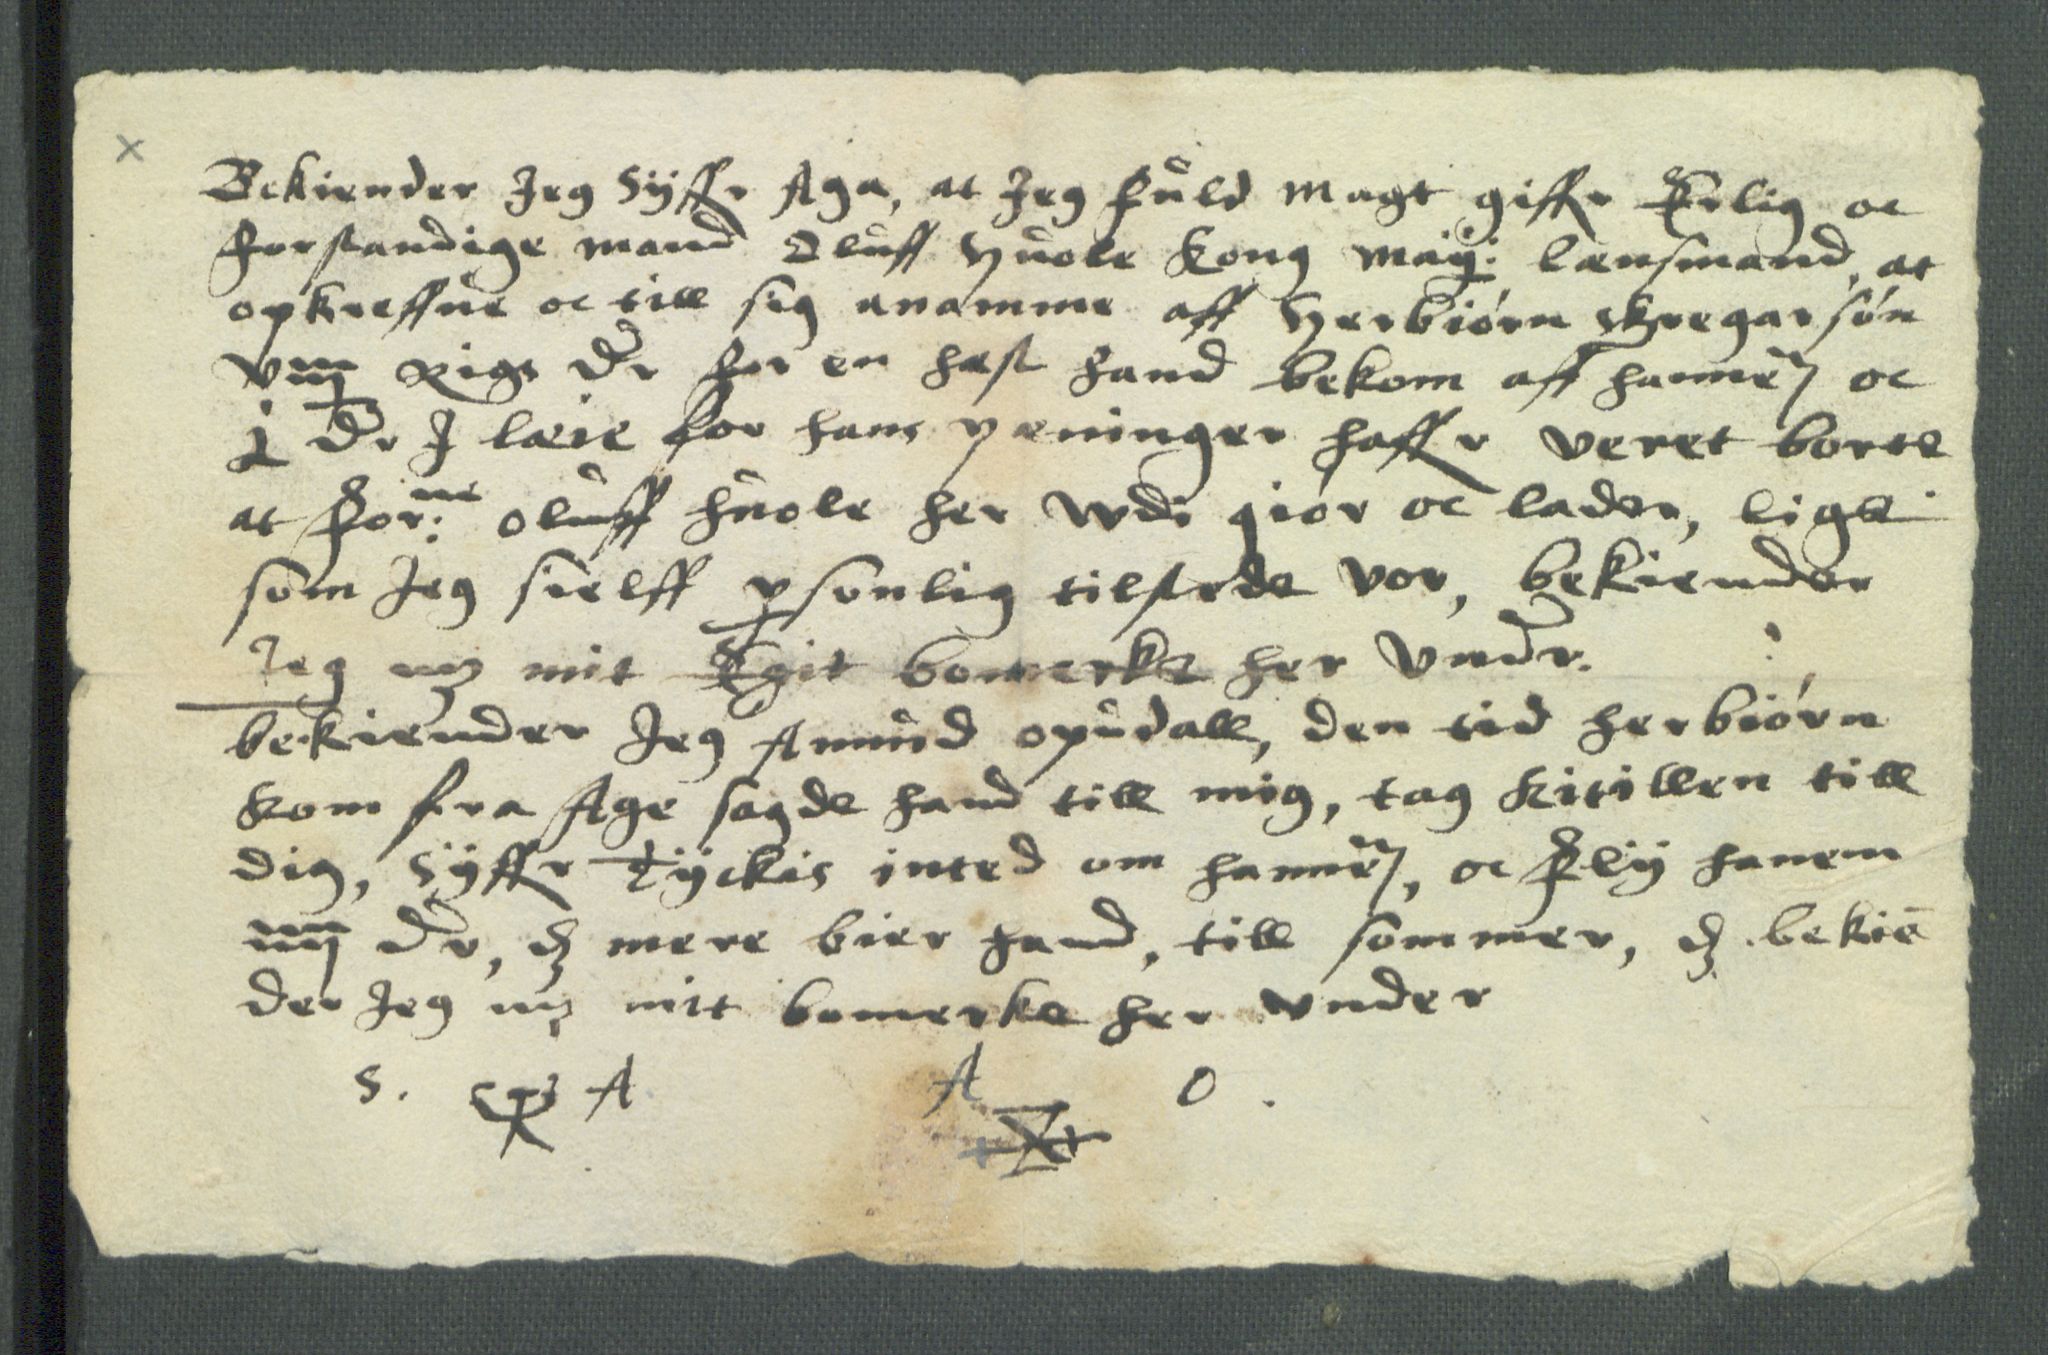 Bekiender Jeg Syffr Aga, at Jeg fuld magt giffr Erlig oc
forstandige mand Oluff Huole Kong may: lænsmand, at
opkreffue oc till sig anamme aff Herbiørn skregarsøn
viiij rigs dr for en hæst hand bekom aff hannem oc
j dr J læie for hans peninger haffr veret borte
at for:ne oluff huole her wdi giør oc lader, lige
som Jeg sielff personlig tilstede vor, bekiender
Jeg mz mit Egit bomerke her Vnder.
bekiender Jeg Amund opudall, den tid herbiørn
kom fra Age sagde hand till mig, tag kitillen till
dig, Syffr Tyckis inted om hannem, oc fly hanem
iiij dr, dz mere bier hand, till sommer, dz bekien
der Jeg mz mitt bomerke her vnder
S. A A O.